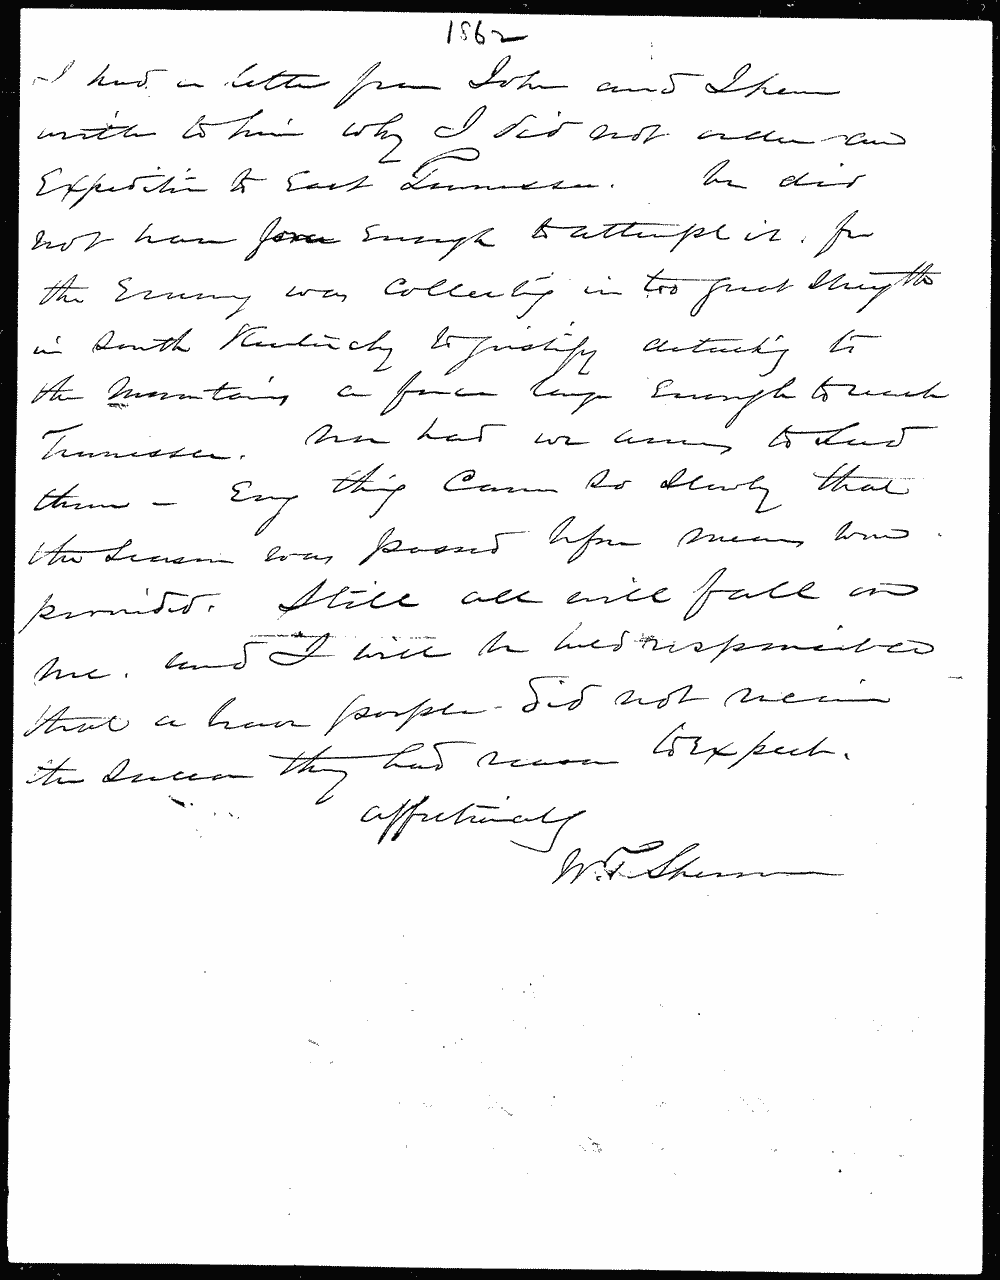 1862
I had a letter from John and I have
written to him why I did not order an
Expedition to East Tennessee. We did
not have force Enough to attempt it, for
the Enemy was Collecting in too great Strength
in South Kentucky to justify detaching to
the Mountains a force large Enough to reach
Tennessee. Nor had we arms to Send
them - Every thing Came So Slowly that
the Season was passed before means were
provided. Still all will fall on
me. and I will be held responsible
that a brave people did not meet
the Success they had reason to Expect.
affectionately
W. T. Sherman